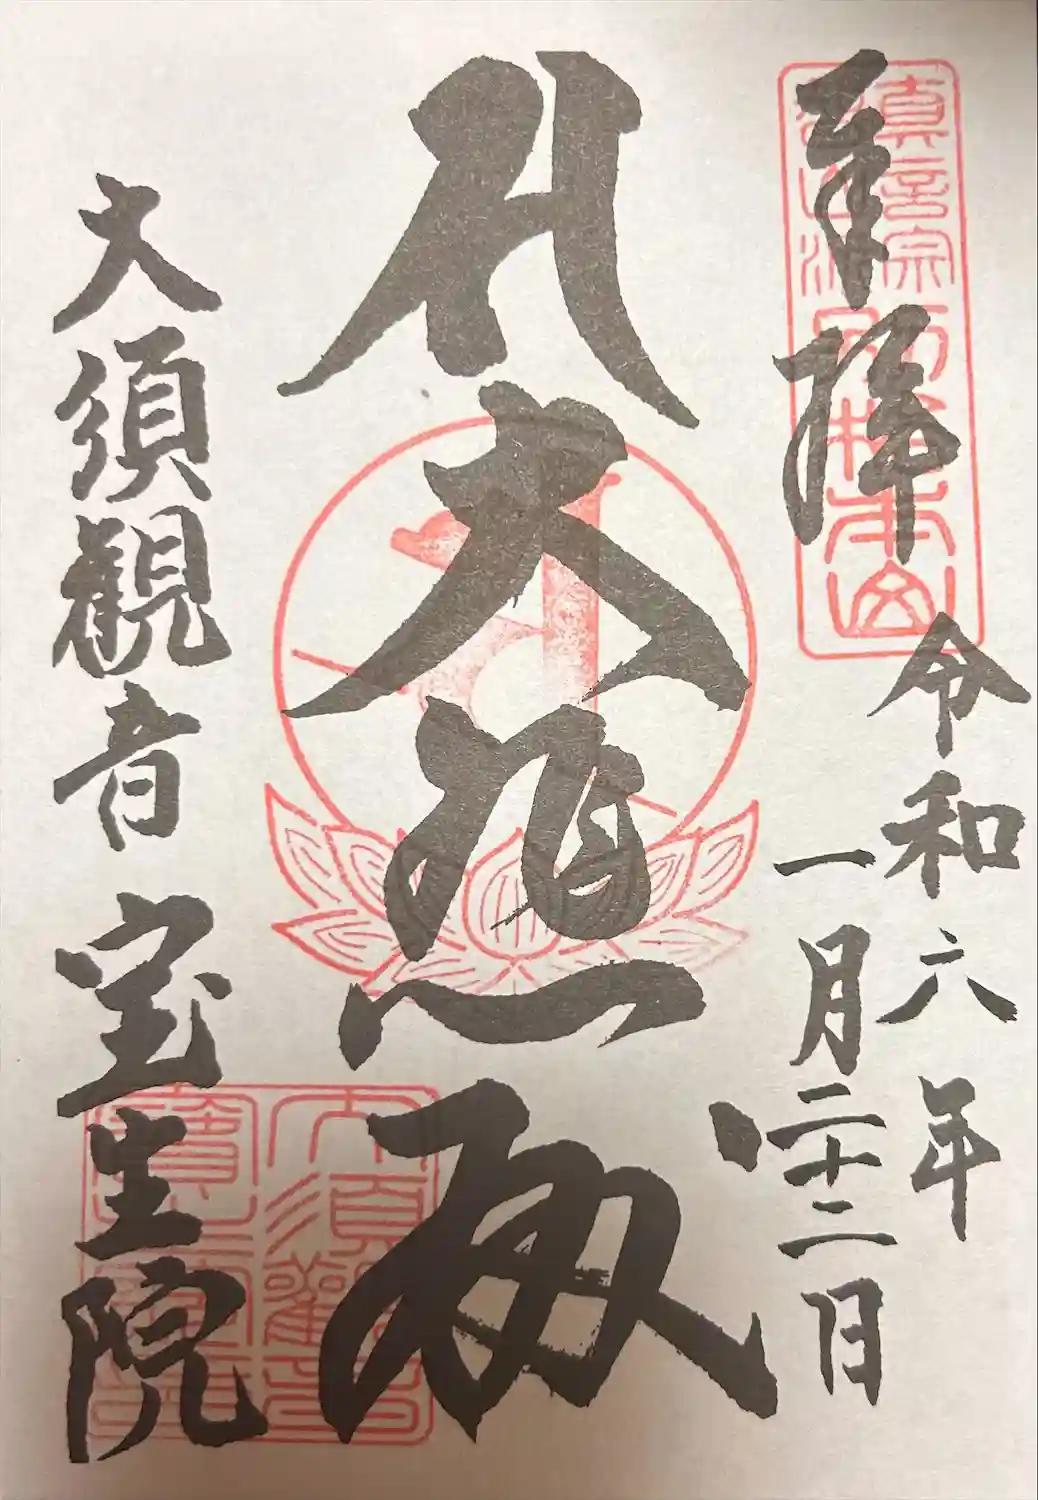 奉拝
真言宗
智山派
別格本山
令和六年
一月二十二日
大悲殿
大須観音 宝生院
大須觀音